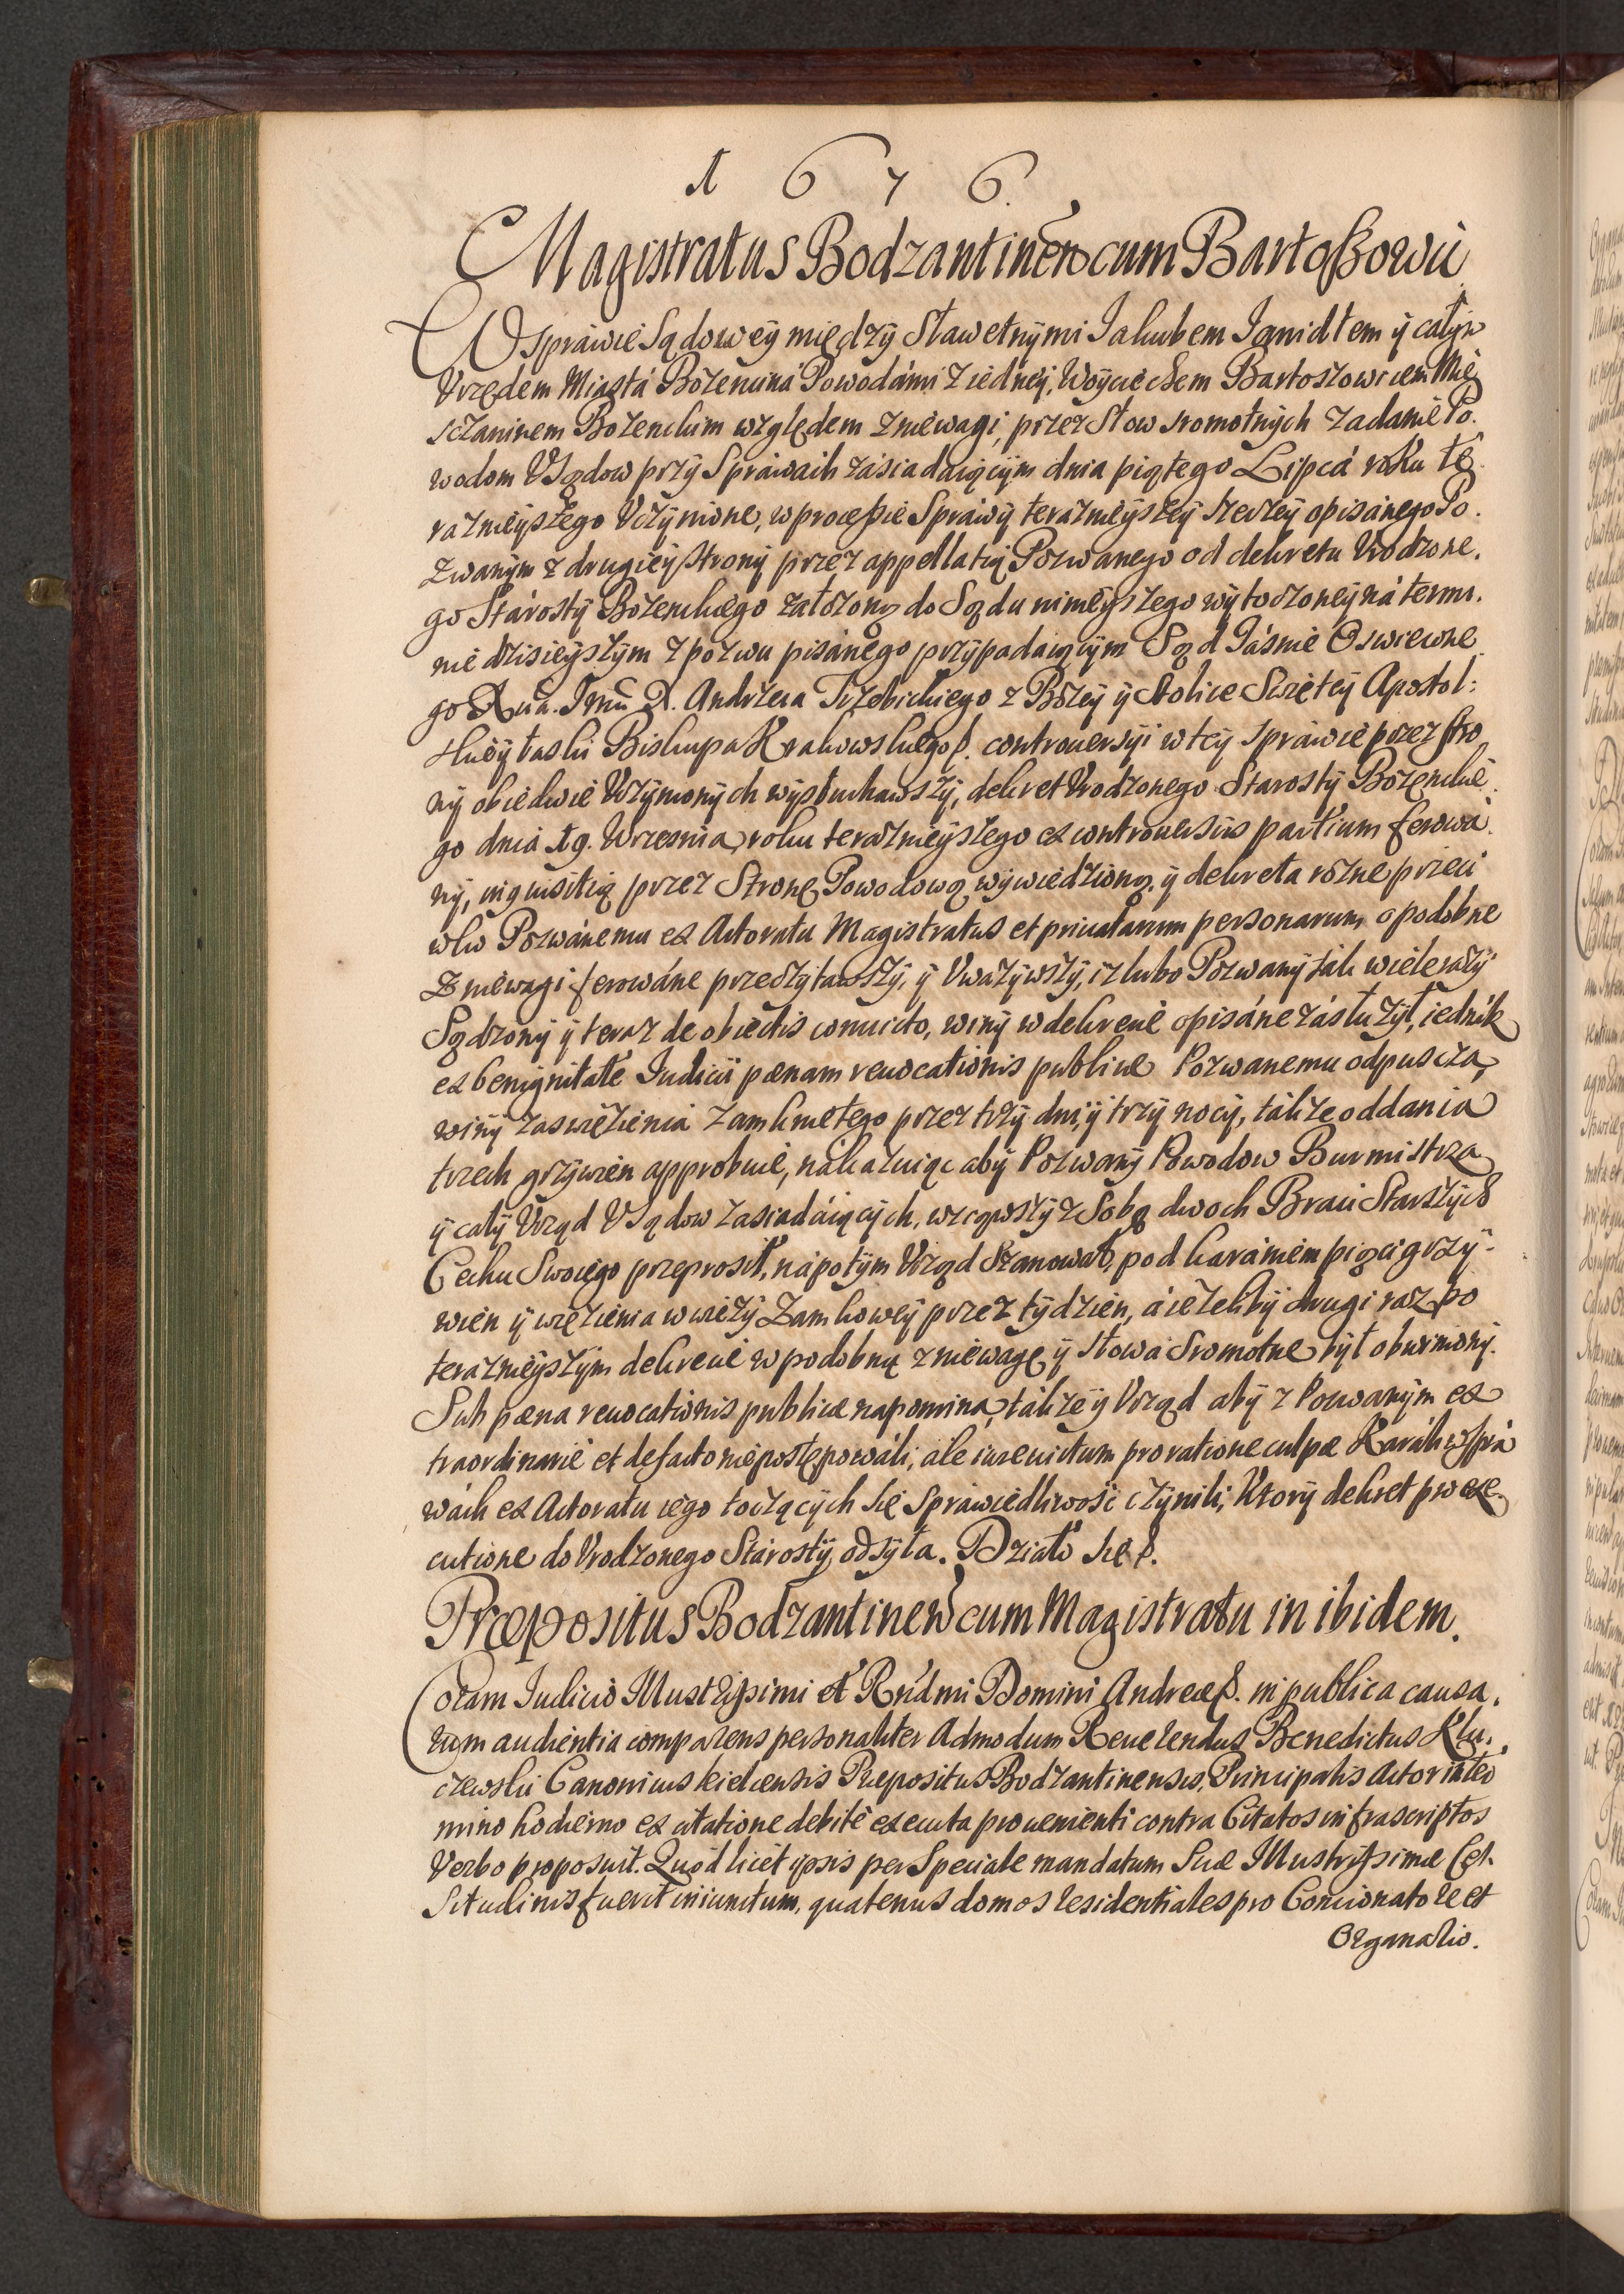 1676.
Magistratus Bodzantinen cum Bartoszowic
W sprawie Sądowey między Sławetnymi Jakubem Jgnidłem y całym
Vrzędem Miastá Bozencina Powodámi z iedney, Woyciechem Bartoszowicem Mie
sczaninem Bozenckim względem zniewagi, przez Słow sromotnych zadanie Po.
wodom V Sądow przy Spráwach zásiadaiącym dnia piątego Lipcá roku te
raznieyszego Vczynione, w procesie Spráwy teraznieyszey szerzey opisánego Po.
zwanym z drugiey strony przez appellatią Pozwanego od dekretu Vrodzone.
go Stárosty Bozenckiego záłozoną do Sądu ninieyszego wytoczoney ná termi.
nie dzisieyszym z pozwu pisánego przypadaiącym Sąd Jásnie Oswiecone
go Xcia. Jmci X. Andrzeia Trzebickiego z Bozey y Stolice Swiętey Apostol:
skiey łaski Biskupa Krakowskiego &. controuersyi w tey spráwie przez stro
ny obiedwie Vczynionych wysłuchawszy, dekret Vrodzonego Starosty Bozenckie
go dnia 19. Wrzesnia roku teraznieyszego ex controuersiis partium ferowa
ny, inquisitią przez Stronę Powodową wywiedzioną, y dekreta rozne przeci
wko Pozwánemu ex Actoratu Magistratus et priuatarum personarum, o podobne
Zniewagi ferowáne przeczytawszy, y Vwazywszy, iz lubo Pozwany ták wiele razy
Sądzony y teraz de obiectis conuicto, winy w dekrecie opisáne zásłuzył, iednák
ex benignitate Iudicii pænam reuocationis publicæ Pozwanemu odpuscza,
winy zás więzienia zamknietego przez trzy dni, y trzy nocy, tákze oddania
trzech grzywien approbuie, nákázuiąc aby Pozwany Powodow Burmistrza
y cały Vrząd V Sądow zasiadáiących, wziąwszy z Sobą dwoch Braci Starszych
Cechu Swoiego przeprosił, nápotym Vrząd Szanował, pod karániem piąci grzy-
wien y więzienia w wiezy Zamkowey przez tydzien, á iezeliby drugi raz po
teraznieyszym dekrecie w podobną zniewagę y słowa Sromotne był obwiniony.
Sub pæna reuocationis publicæ napomina, tákze y Vrząd aby z Pozwanym ex
traordinarie et de facto niepostępowáli, ále iure uictum pro ratione culpæ Karáli w sprá
wách ex Actoratu iego toczących się Spráwiedliwosc czynili, Ktory dekret pro exe.
cutione do Vrodzonego Stárosty odsyła. Działo się &.
Præpositus Bodzantinen cum Magistratu in ibidem.
Coram Iudicio Illustrissimi et Rndmi Domini Andreæ &. in publica causa.
rum audientia comparens personaliter Admodum Reuerendus Benedictus Klu.
czewski Canonicus Kielcensis Præpositus Bodzantinensis, Principalis Actor in ter
mino hodierno ex citatione debitè executa prouenienti contra Citatos infrascriptos
Verbo proposuit. Quòd licèt ipsis per Speciale mandatum Suæ Illustrissimæ Cel.
Situdinis fuerit iniunctum, quatenus domos residentiales pro Concionatore et
Organario.